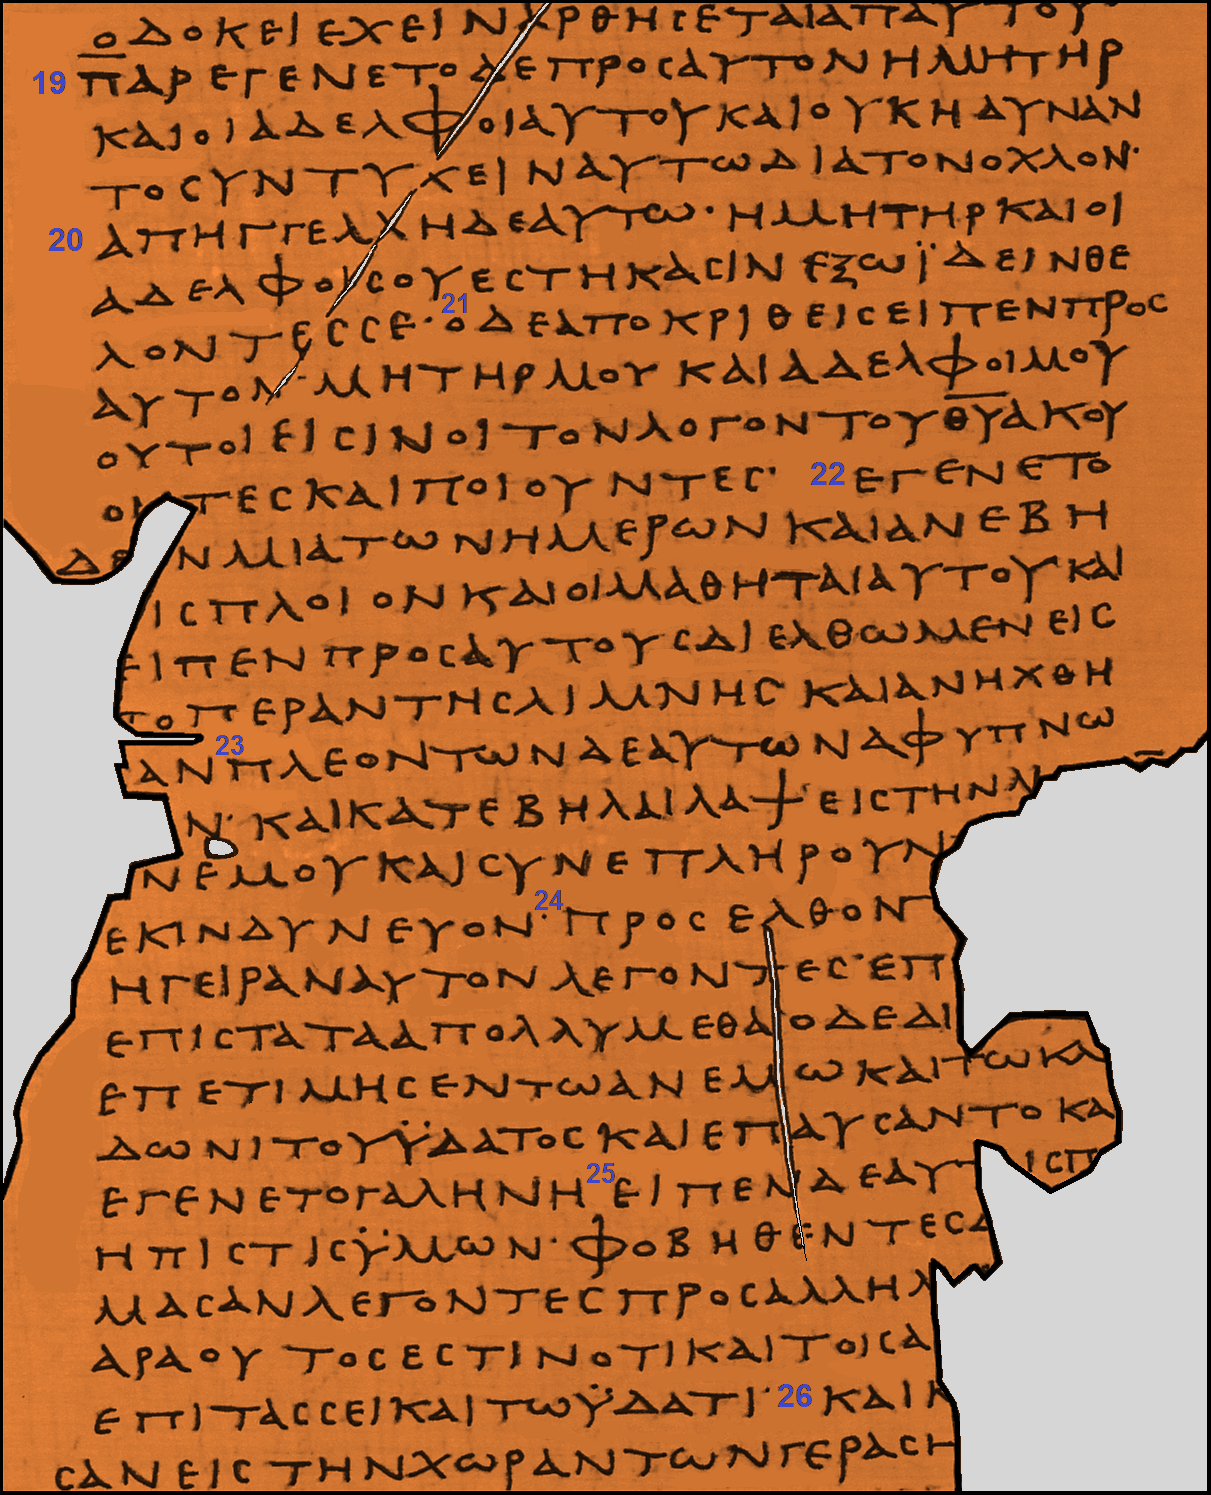 ο̅ΔΟΚΕΙΕΧΕΙΝΑΡΘΗCΕΤΑΙΑΠΑΥΤΟΥ·
19 ΠΑΡΕΓΕΝΕΤΟΔΕΠΡΟCΑΥΤΟΝΗΜΗΤΗΡ
ΚΑΙΟΙΑΔΕΛΦΟΙΑΥΤΟΥΚΑΙΟΥΚΗΔΥΝΑΝ
ΤΟCΥΝΤΥΧΕΙΝΑΥΤΩΔΙΑΤΟΝΟΧΛΟΝ·
20 ΑΠΗΓΓΕΛΗΔΕΑΥΤΩ·ΗΜΗΤΗΡΚΑΙΟΙ
ΑΔΕΛΦΟΙCΟΥΕCΤΗΚΑCΙΝΕΞΩΪΔΕΙΝΘΕ
ΛΟΝΤΕCCΕ· 21 ΟΔΕΑΠΟΚΡΙΘΕΙCΕΙΠΕΝΠΡΟC
ΑΥΤΟΝ·ΜΗΤΗΡΜΟΥΚΑΙΑΔΕΛΦΟΙΜΟΥ
ΟΥΤΟΙΕΙCΙΝΟΙΤΟΝΛΟΓΟΝΤΟΥΘ̅Υ̅ΑΚΟΥ
ΟΝΤΕCΚΑΙΠΟΙΟΥΝΤΕC· 22 ΕΓΕΝΕΤΟ
ΔΕ ΝΜΙΑΤΩΝΗΜΕΡΩΝΚΑΙΑΝΕΒΗ
ΙCΠΛΟΙΟΝΚΑΙΟΙΜΑΘΗΤΑΙΑΥΤΟΥΚΑΙ
ΕΙΠΕΝΠΡΟCΑΥΤΟΥCΔΙΕΛΘΩΜΕΝΕΙC
ΤΟΠΕΡΑΝΤΗCΛΙΜΝΗCΚΑΙΑΝΗΧΘΗ
ΑΝ 23 ΠΛΕΟΝΤΩΝΔΕΑΥΤΩΝΑΦΥΠΝΩ
Ν·ΚΑΙΚΑΤΕΒΗΛΑΙΛΑΨΕΙCΤΗΝΛΙ
ΝΕΜΟΥΚΑΙCΥΝΕΠΛΗΡΟΥΝ
ΕΚΙΝΔΥΝΕΥΟΝ· 24 ΠΡΟCΕΛΘΟΝΤ
ΗΓΕΙΡΑΝΑΥΤΟΝΛΕΓΟΝΤΕC·ΕΠΙ
ΕΠΙCΤΑΤΑΑΠΟΛΛΥΜΕΘΑΟΔΕΔΙ
ΕΠΕΤΙΜΗCΕΝΤΩΑΝΕΜΩΚΑΙΤΩΚΛ
ΔΩΝΙΤΟΥΫΔΑΤΟCΚΑΙΕΠΑΥCΑΝΤΟΚΑ
ΕΓΕΝΕΤΟΓΑΛΗΝΗ 25 ΕΙΠΕΝΔΕΑΥΤ ΙCΠ
ΗΠΙCΤΙCΫΜΩΝ·ΦΟΒΗΘΕΝΤΕCΔ
ΜΑCΑΝΛΕΓΟΝΤΕCΠΡΟCΑΛΛΗΛ
ΑΡΑΟΥΤΟCΕCΤΙΝΟΤΙΚΑΙΤΟΙCΑ
ΕΠΙΤΑCCΕΙΚΑΙΤΩΫΔΑΤΙ· 26 ΚΑΙΚ
CΑΝΕΙCΤΗΝΧΩΡΑΝΤΩΝΓΕΡΑCΗ